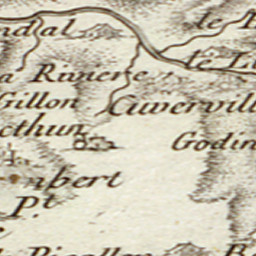 ndal
le
a Riviere
le L
Gillon
Cuvervill
cthun
Godin
bert
P.t